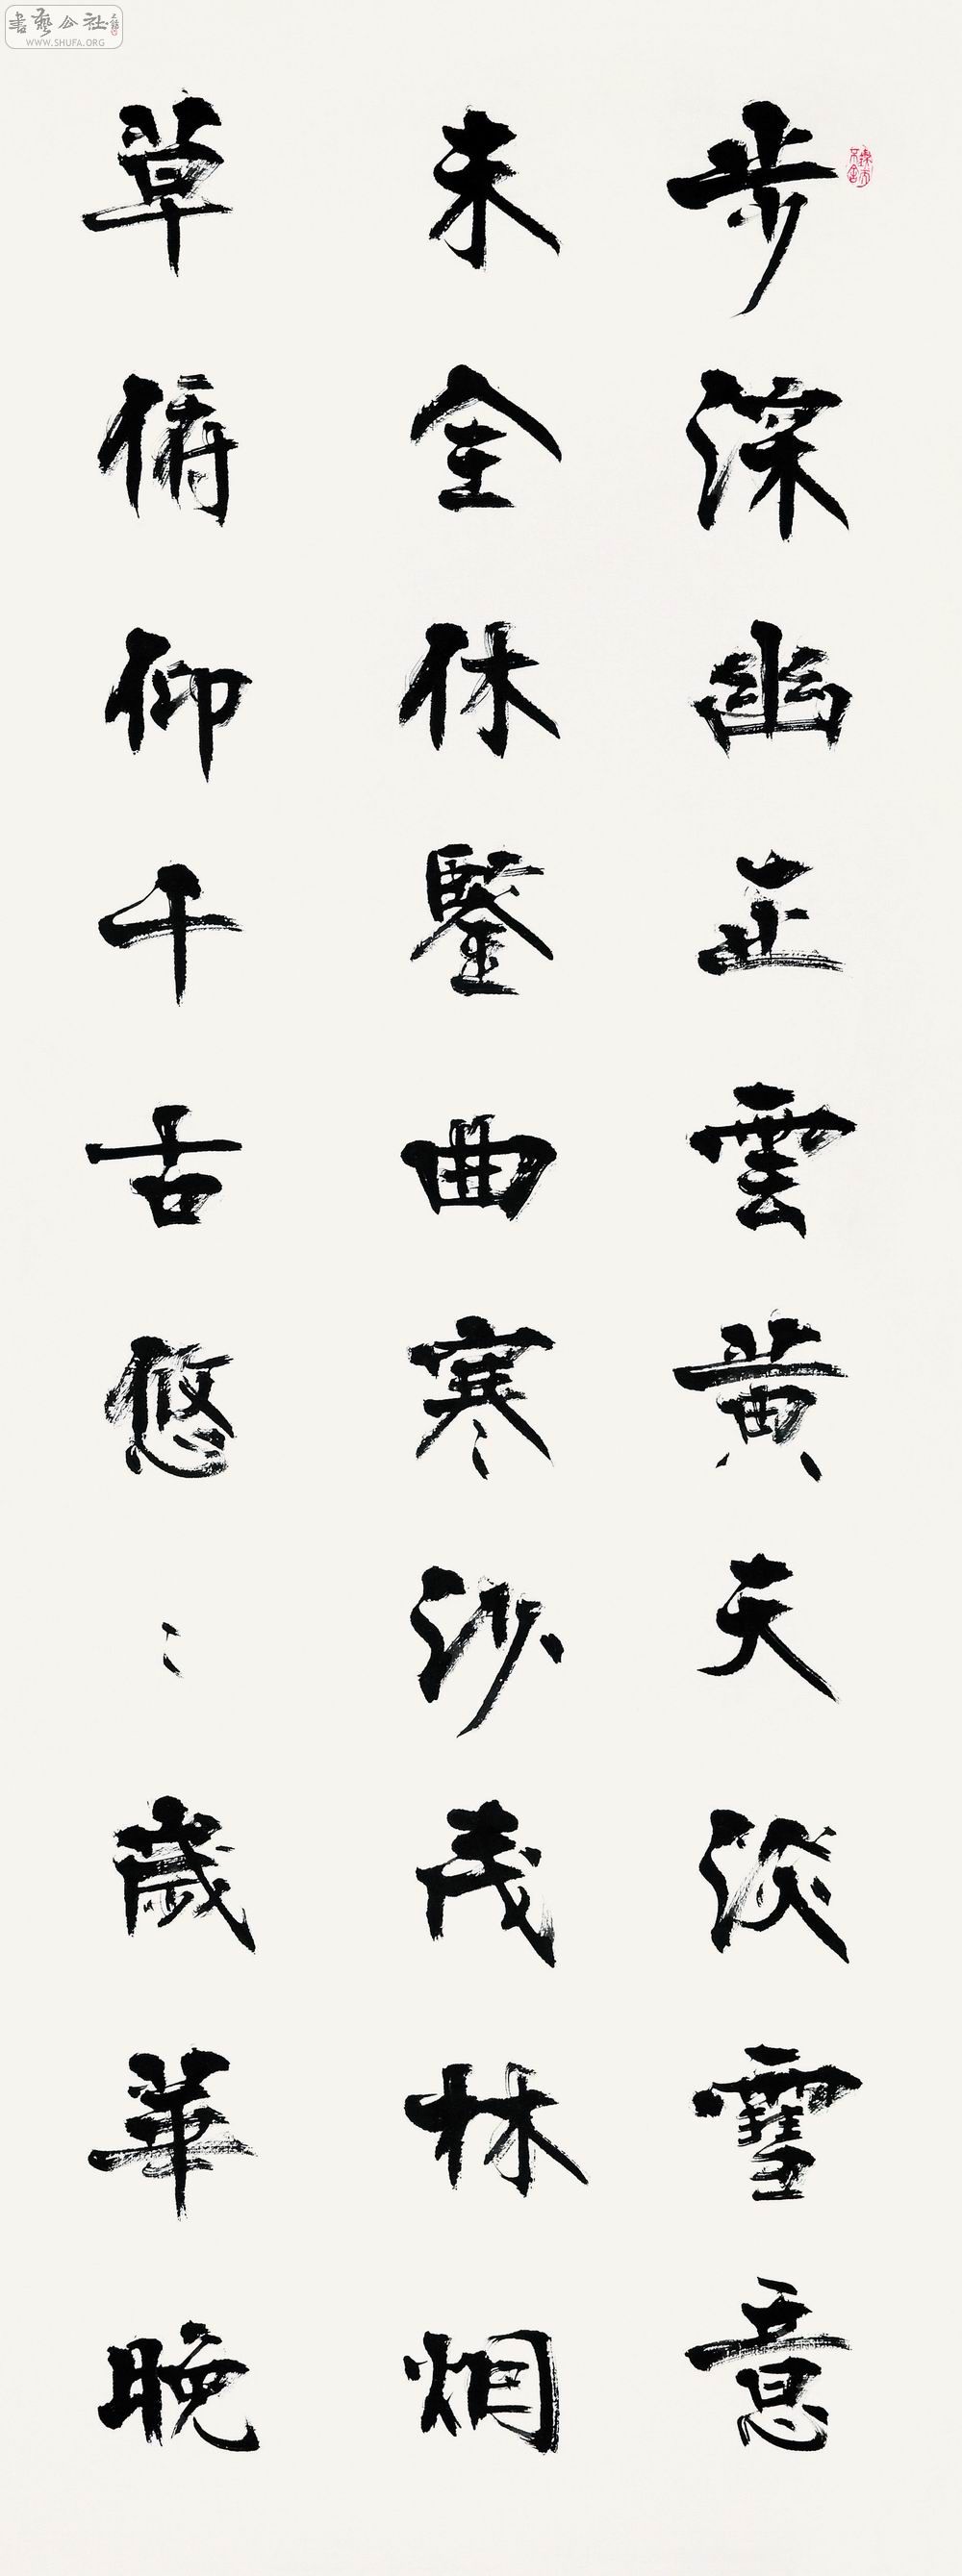 步深幽正雲黃天淡雪意
未全休鑒曲寒沙茂林烟
草俯仰千古悠〻歲華晚
書藝公社
WWW.SHUFA.ORG